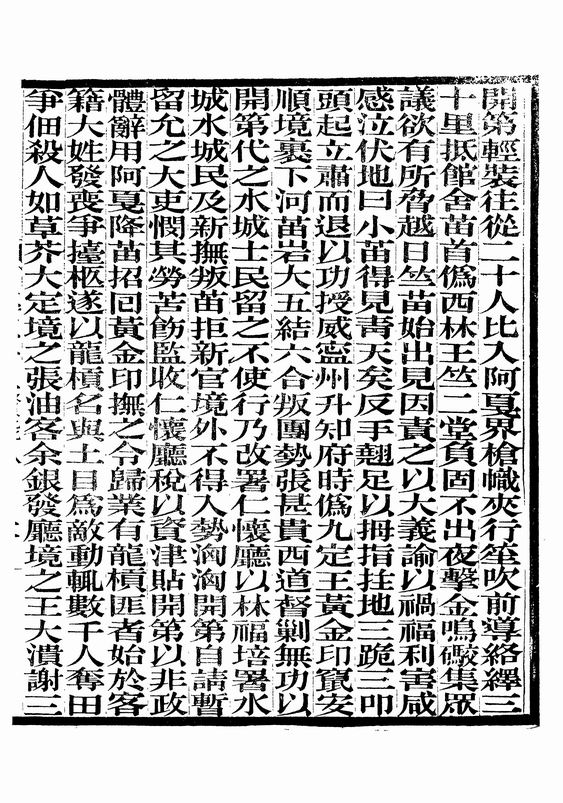 開第輕裝往從二十人比入阿戛界槍幟夾行笙吹前導絡繹三
十里抵館舍苗首僞西林王竺二堂負固不出夜擊金鳴礮集眾
議欲有所脅越日竺苗始出見因責之以大義諭以禍福利害咸
感泣伏地曰小苗得見靑天矣反手翹足以拇指拄地三跪三叩
頭起立肅而退以功授威寧州升知府時僞九定王黃金印竄安
順境裹下河苗岩大五結六合叛團勢張甚貴西道督剿無功以
開第代之水城士民留之不使行乃改署仁懷廳以林福培署水
城水城民及新撫叛苗拒新官境外不得入勢洶洶開第自請暫
留允之大吏憫其勞苦飭監收仁懷廳稅以資津貼開第以非政
體辭用阿戛降苗招回黃金印撫之令歸業有龍槓匪者始於客
籍大姓發喪爭擡柩遂以龍槓名與土目爲敵動輒數千人奪田
爭佃殺人如草芥大定境之張油客余銀發廳境之王大潰謝三